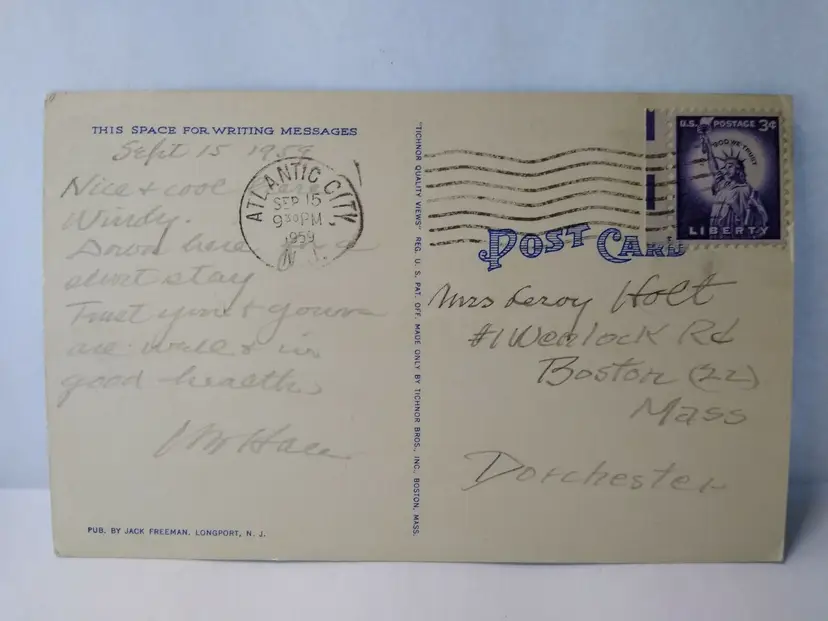 THIS SPACE FOR WRITING MESSAGES
Sept 15 1959
Nice + cool
Windy.
Down here for a
short stay
Trust you + yours
are well + in
good health
PUB. BY JACK FREEMAN, LONGPORT, N. J.
ATLANTIC CITY
SEP 15
9 30 PM
1959
N. J.
"TICHNOR QUALITY VIEWS" REG. U. S. PAT. OFF. MADE ONLY BY TICHNOR BROS., INC., BOSTON, MASS.
U.S. POSTAGE 3¢
IN GOD WE TRUST
LIBERTY
POST CARD
Mrs Leroy Holt
#1 Wenlock Rd
Boston (22)
Mass
Dorchester